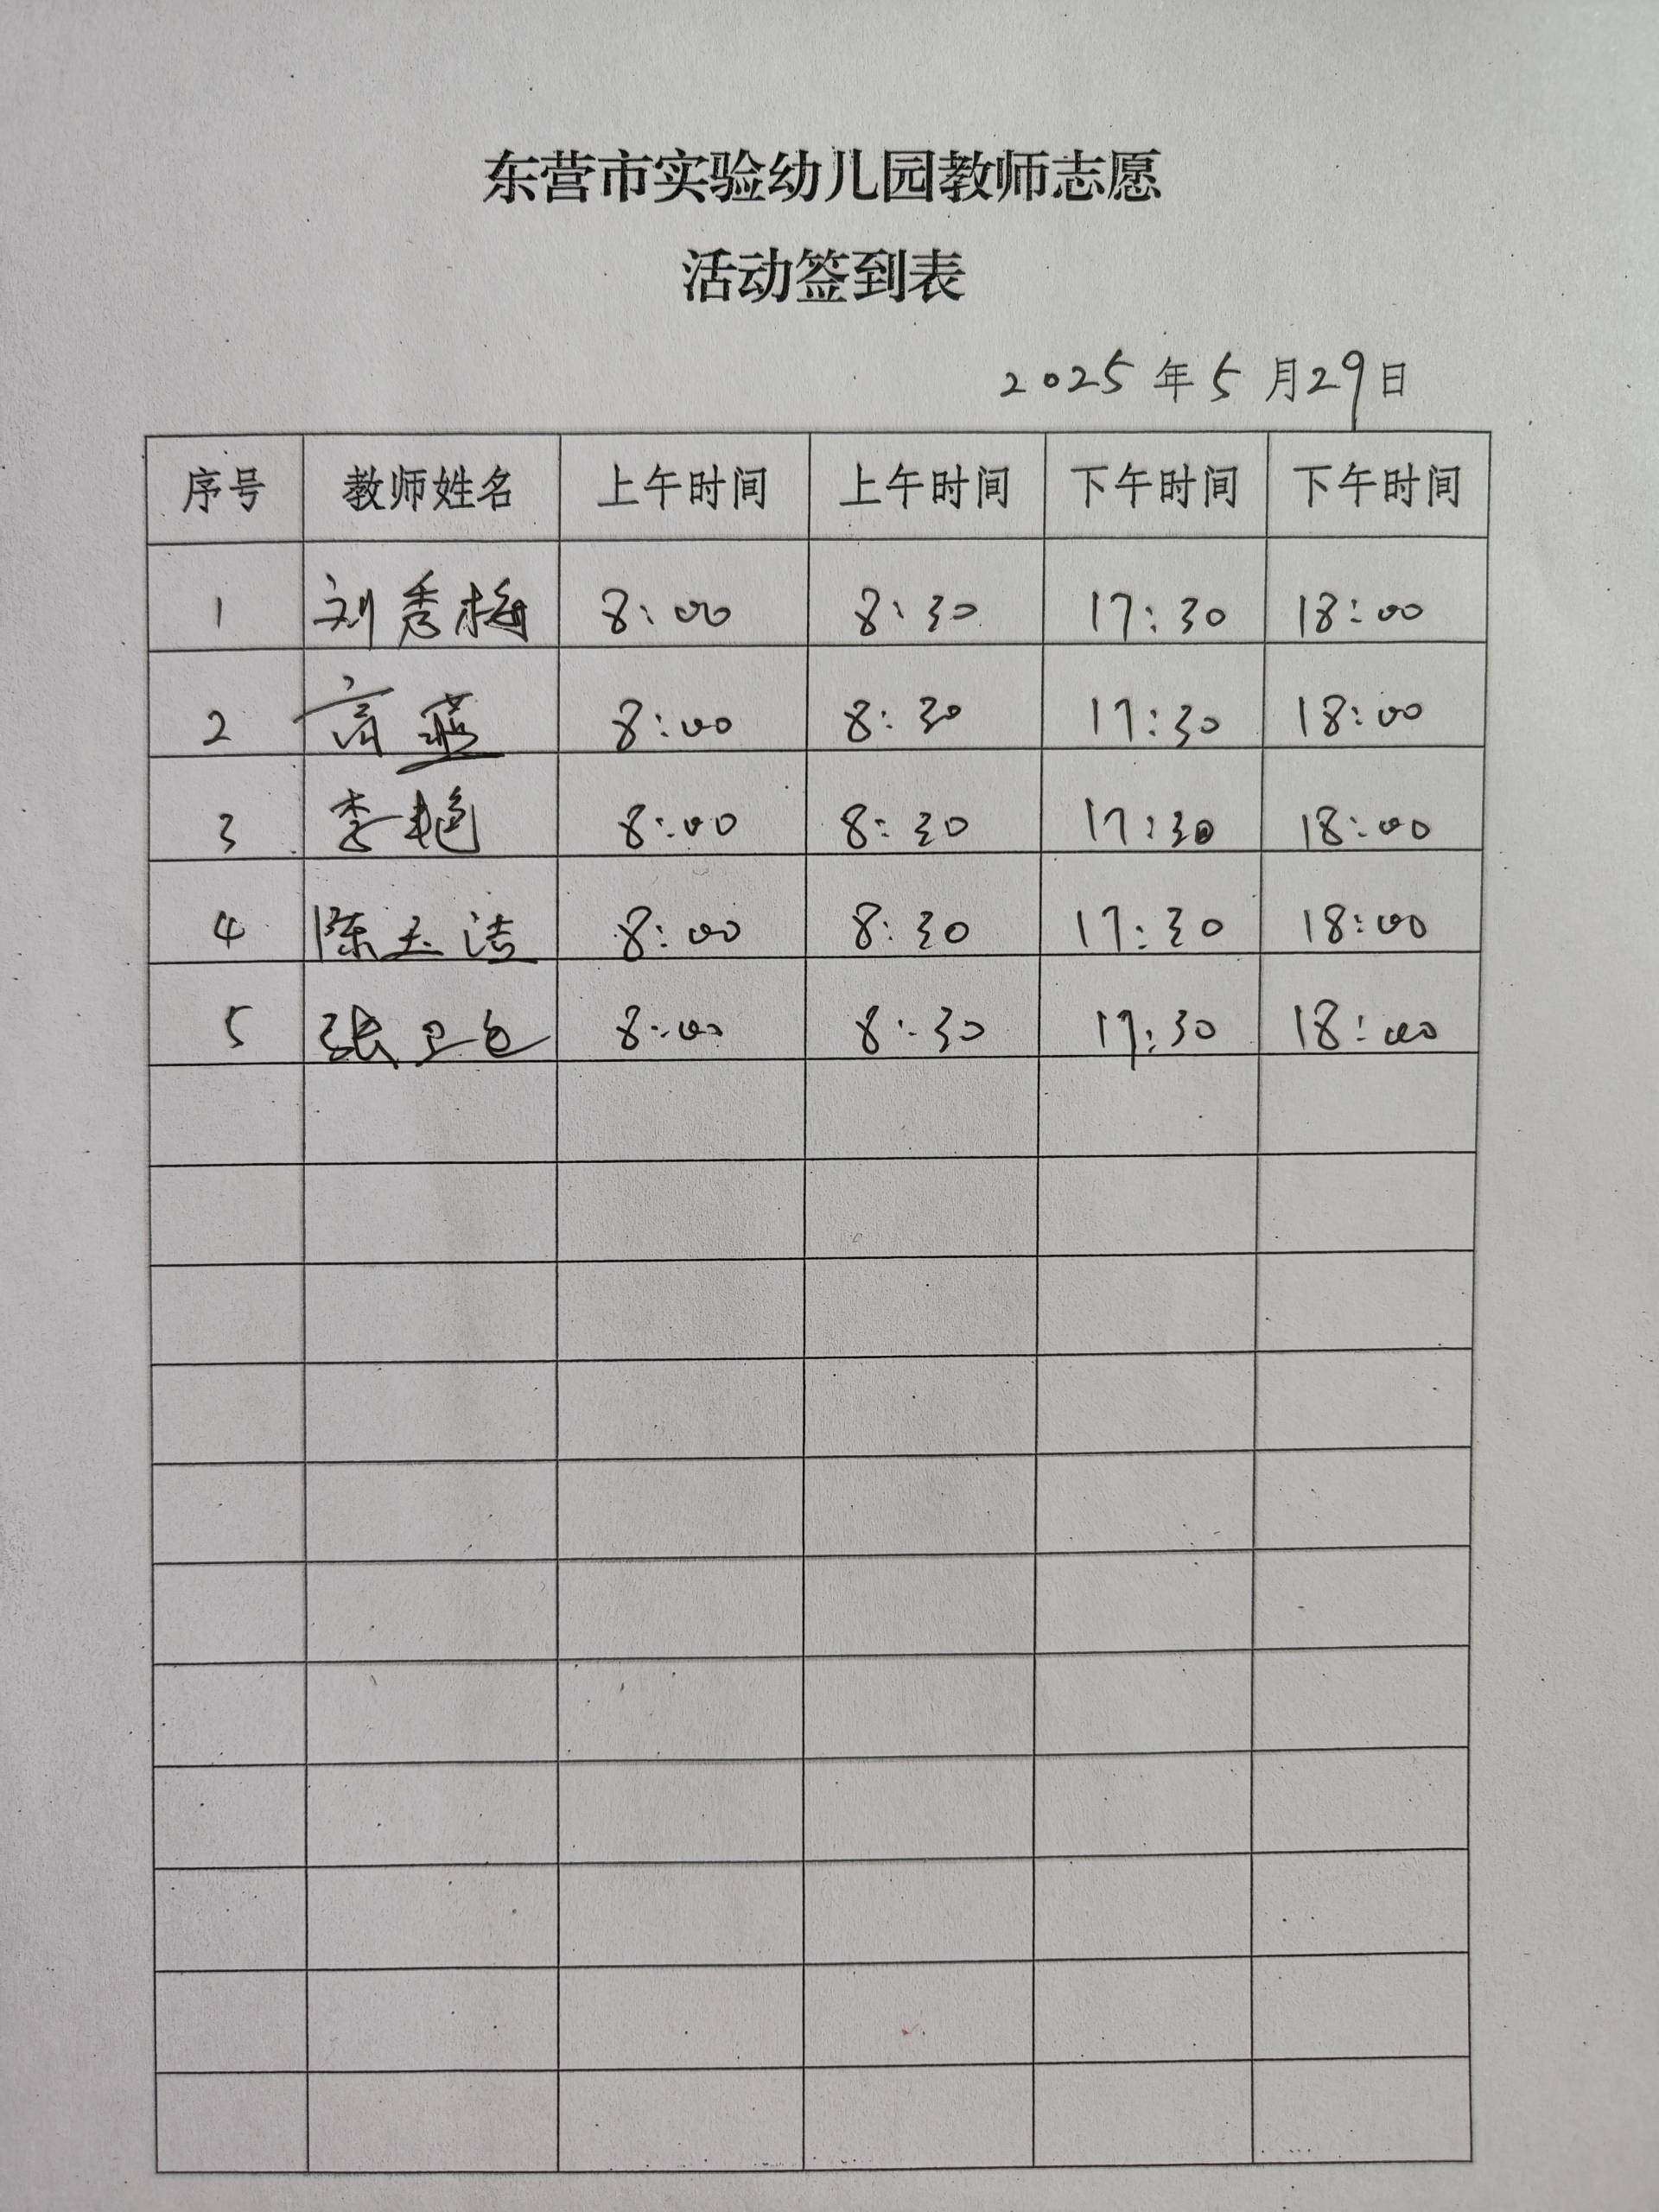 东营市实验幼儿园教师志愿
活动签到表
2025年5月29日
序号 教师姓名 上午时间 上午时间 下午时间 下午时间
1 刘秀梅 8:00 8:30 17:30 18:00
2 高燕 8:00 8:30 17:30 18:00
3 李艳 8:00 8:30 17:30 18:00
4 陈玉洁 8:00 8:30 17:30 18:00
5 张 8:00 8:30 17:30 18:00